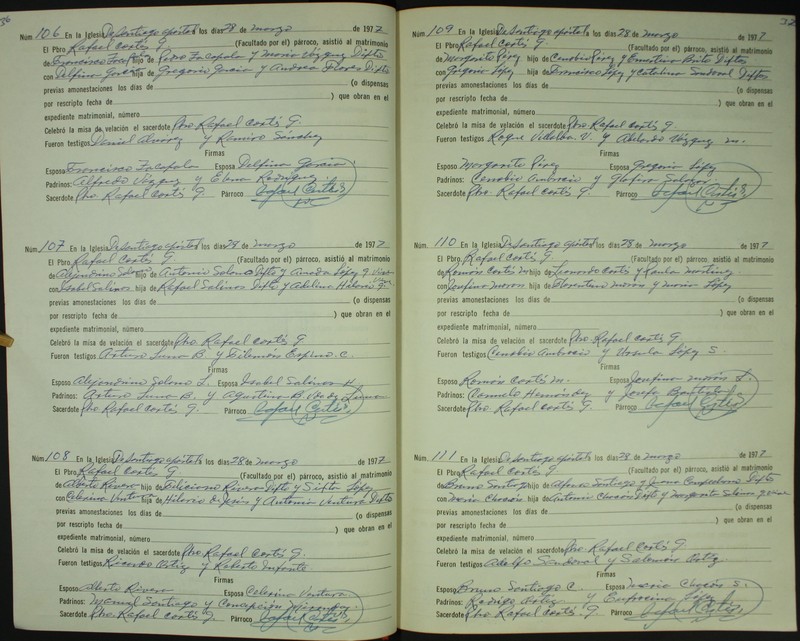 36
Núm. 106 En la Iglesia De Santiago apóstol los días 28 de marzo de 1977
El Pbro. Rafael Cortés G. (Facultado por el) párroco, asistió al matrimonio
de Francisco hijo de Zacapala y María Vázquez Difts
con Delfina García hija de Gregorio García y Andrea Flores Difts
previas amonestaciones los días de (o dispensas
por rescripto fecha de ) que obran en el
expediente matrimonial, número
Celebró la misa de velación el sacerdote Pbro. Rafael Cortés G.
Fueron testigos Daniel y Ramiro Sánchez
Firmas
Esposo Francisco Zacapala Esposa Delfina García
Padrinos: Alfredo Vázquez y Elena Rodríguez
Sacerdote Pbro. Rafael Cortés G. Párroco Rafael Cortés
Núm. 107 En la Iglesia De Santiago apóstol los días 28 de marzo de 1977
El Pbro. Rafael Cortés G. (Facultado por el) párroco, asistió al matrimonio
de Alejandrino hijo de Antonio Solano Difto y López
con Isabel Salinas hija de Rafael Salinas Difto y Adelina
previas amonestaciones los días de (o dispensas
por rescripto fecha de ) que obran en el
expediente matrimonial, número
Celebró la misa de velación el sacerdote Pbro. Rafael Cortés G.
Fueron testigos Arturo Luna B. y Filemón Espino C.
Firmas
Esposo Alejandrino Solano L. Esposa Isabel Salinas H.
Padrinos: Arturo Luna B. y Agustina B. de Luna
Sacerdote Pbro. Rafael Cortés G. Párroco Rafael Cortés
Núm. 108 En la Iglesia De Santiago apóstol los días 28 de marzo de 1977
El Pbro. Rafael Cortés G. (Facultado por el) párroco, asistió al matrimonio
de Alberto Rivera hijo de Feliciano Rivera Difto y López
con Celerina Ventura hija de Hilario de Jesús y Antonia Ventura Difts
previas amonestaciones los días de (o dispensas
por rescripto fecha de ) que obran en el
expediente matrimonial, número
Celebró la misa de velación el sacerdote Pbro. Rafael Cortés G.
Fueron testigos Ricardo Ortiz y Roberto Infante
Firmas
Esposo Alberto Rivera Esposa Celerina Ventura
Padrinos: Manuel Santiago y Concepción
Sacerdote Pbro. Rafael Cortés G. Párroco Rafael Cortés
Núm. 109 En la Iglesia De Santiago apóstol los días 28 de marzo de 1977
El Pbro. Rafael Cortés G. (Facultado por el) párroco, asistió al matrimonio
de Margarito Pérez hijo de Cenobio Pérez y Ernestina Brito Difts
con Gregoria López hija de Francisco López y Catalina Sandoval Difts
previas amonestaciones los días de (o dispensas
por rescripto fecha de ) que obran en el
expediente matrimonial, número
Celebró la misa de velación el sacerdote Pbro. Rafael Cortés G.
Fueron testigos Roque Villalba V. y Abelardo Vázquez M.
Firmas
Esposo Margarito Pérez Esposa Gregoria López
Padrinos: Cenobio Ambrocio y Glafira Salazar
Sacerdote Pbro. Rafael Cortés G. Párroco Rafael Cortés
Núm. 110 En la Iglesia De Santiago apóstol los días 28 de marzo de 1977
El Pbro. Rafael Cortés G. (Facultado por el) párroco, asistió al matrimonio
de Ramón Cortés M. hijo de Leonardo Cortés y Paula Martínez
con Josefina Morán hija de Florentino Morán y María López
previas amonestaciones los días de (o dispensas
por rescripto fecha de ) que obran en el
expediente matrimonial, número
Celebró la misa de velación el sacerdote Pbro. Rafael Cortés G.
Fueron testigos Cenobio Ambrocio y Ursula López S.
Firmas
Esposo Ramón Cortés M. Esposa Josefina Morán L.
Padrinos: Camelo Hernández y Josefa Bautista
Sacerdote Pbro. Rafael Cortés G. Párroco Rafael Cortés
Núm. 111 En la Iglesia De Santiago apóstol los días 28 de marzo de 1977
El Pbro. Rafael Cortés G. (Facultado por el) párroco, asistió al matrimonio
de Bruno Santiago hijo de Alfonso Santiago y Juana Difts
con María Chacón hija de Antonio Chacón Difto y Margarita
previas amonestaciones los días de (o dispensas
por rescripto fecha de ) que obran en el
expediente matrimonial, número
Celebró la misa de velación el sacerdote Pbro. Rafael Cortés G.
Fueron testigos Adolfo Sandoval y Salomón Ortiz
Firmas
Esposo Bruno Santiago C. Esposa María Chacón S.
Padrinos: Rodrigo Ortiz y Eufrocina López
Sacerdote Pbro. Rafael Cortés G. Párroco Rafael Cortés